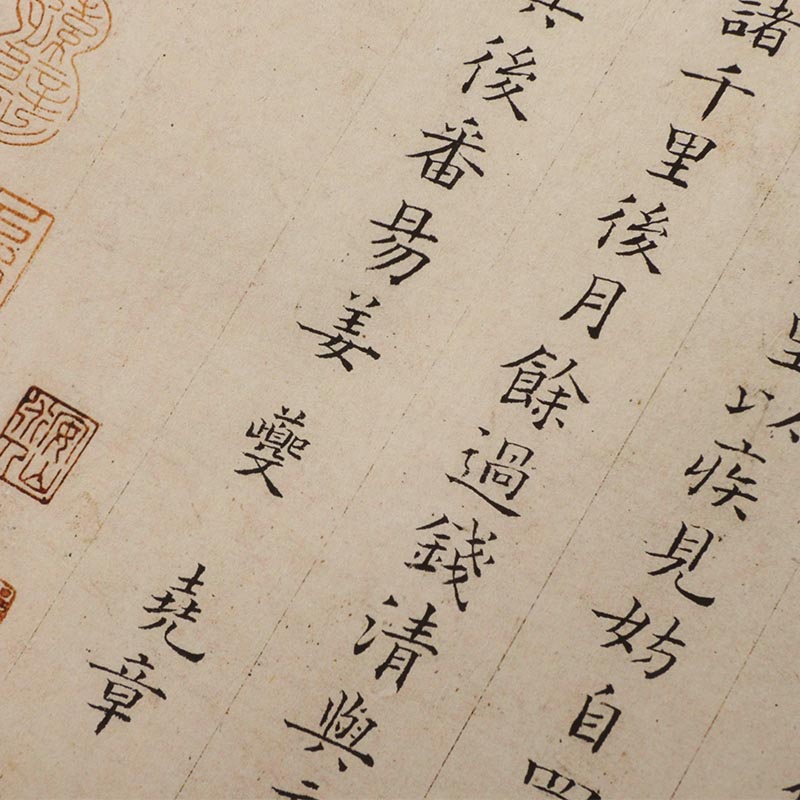 以疾見妨自四
諸千里後月餘過錢清與
後番昜姜夔堯章